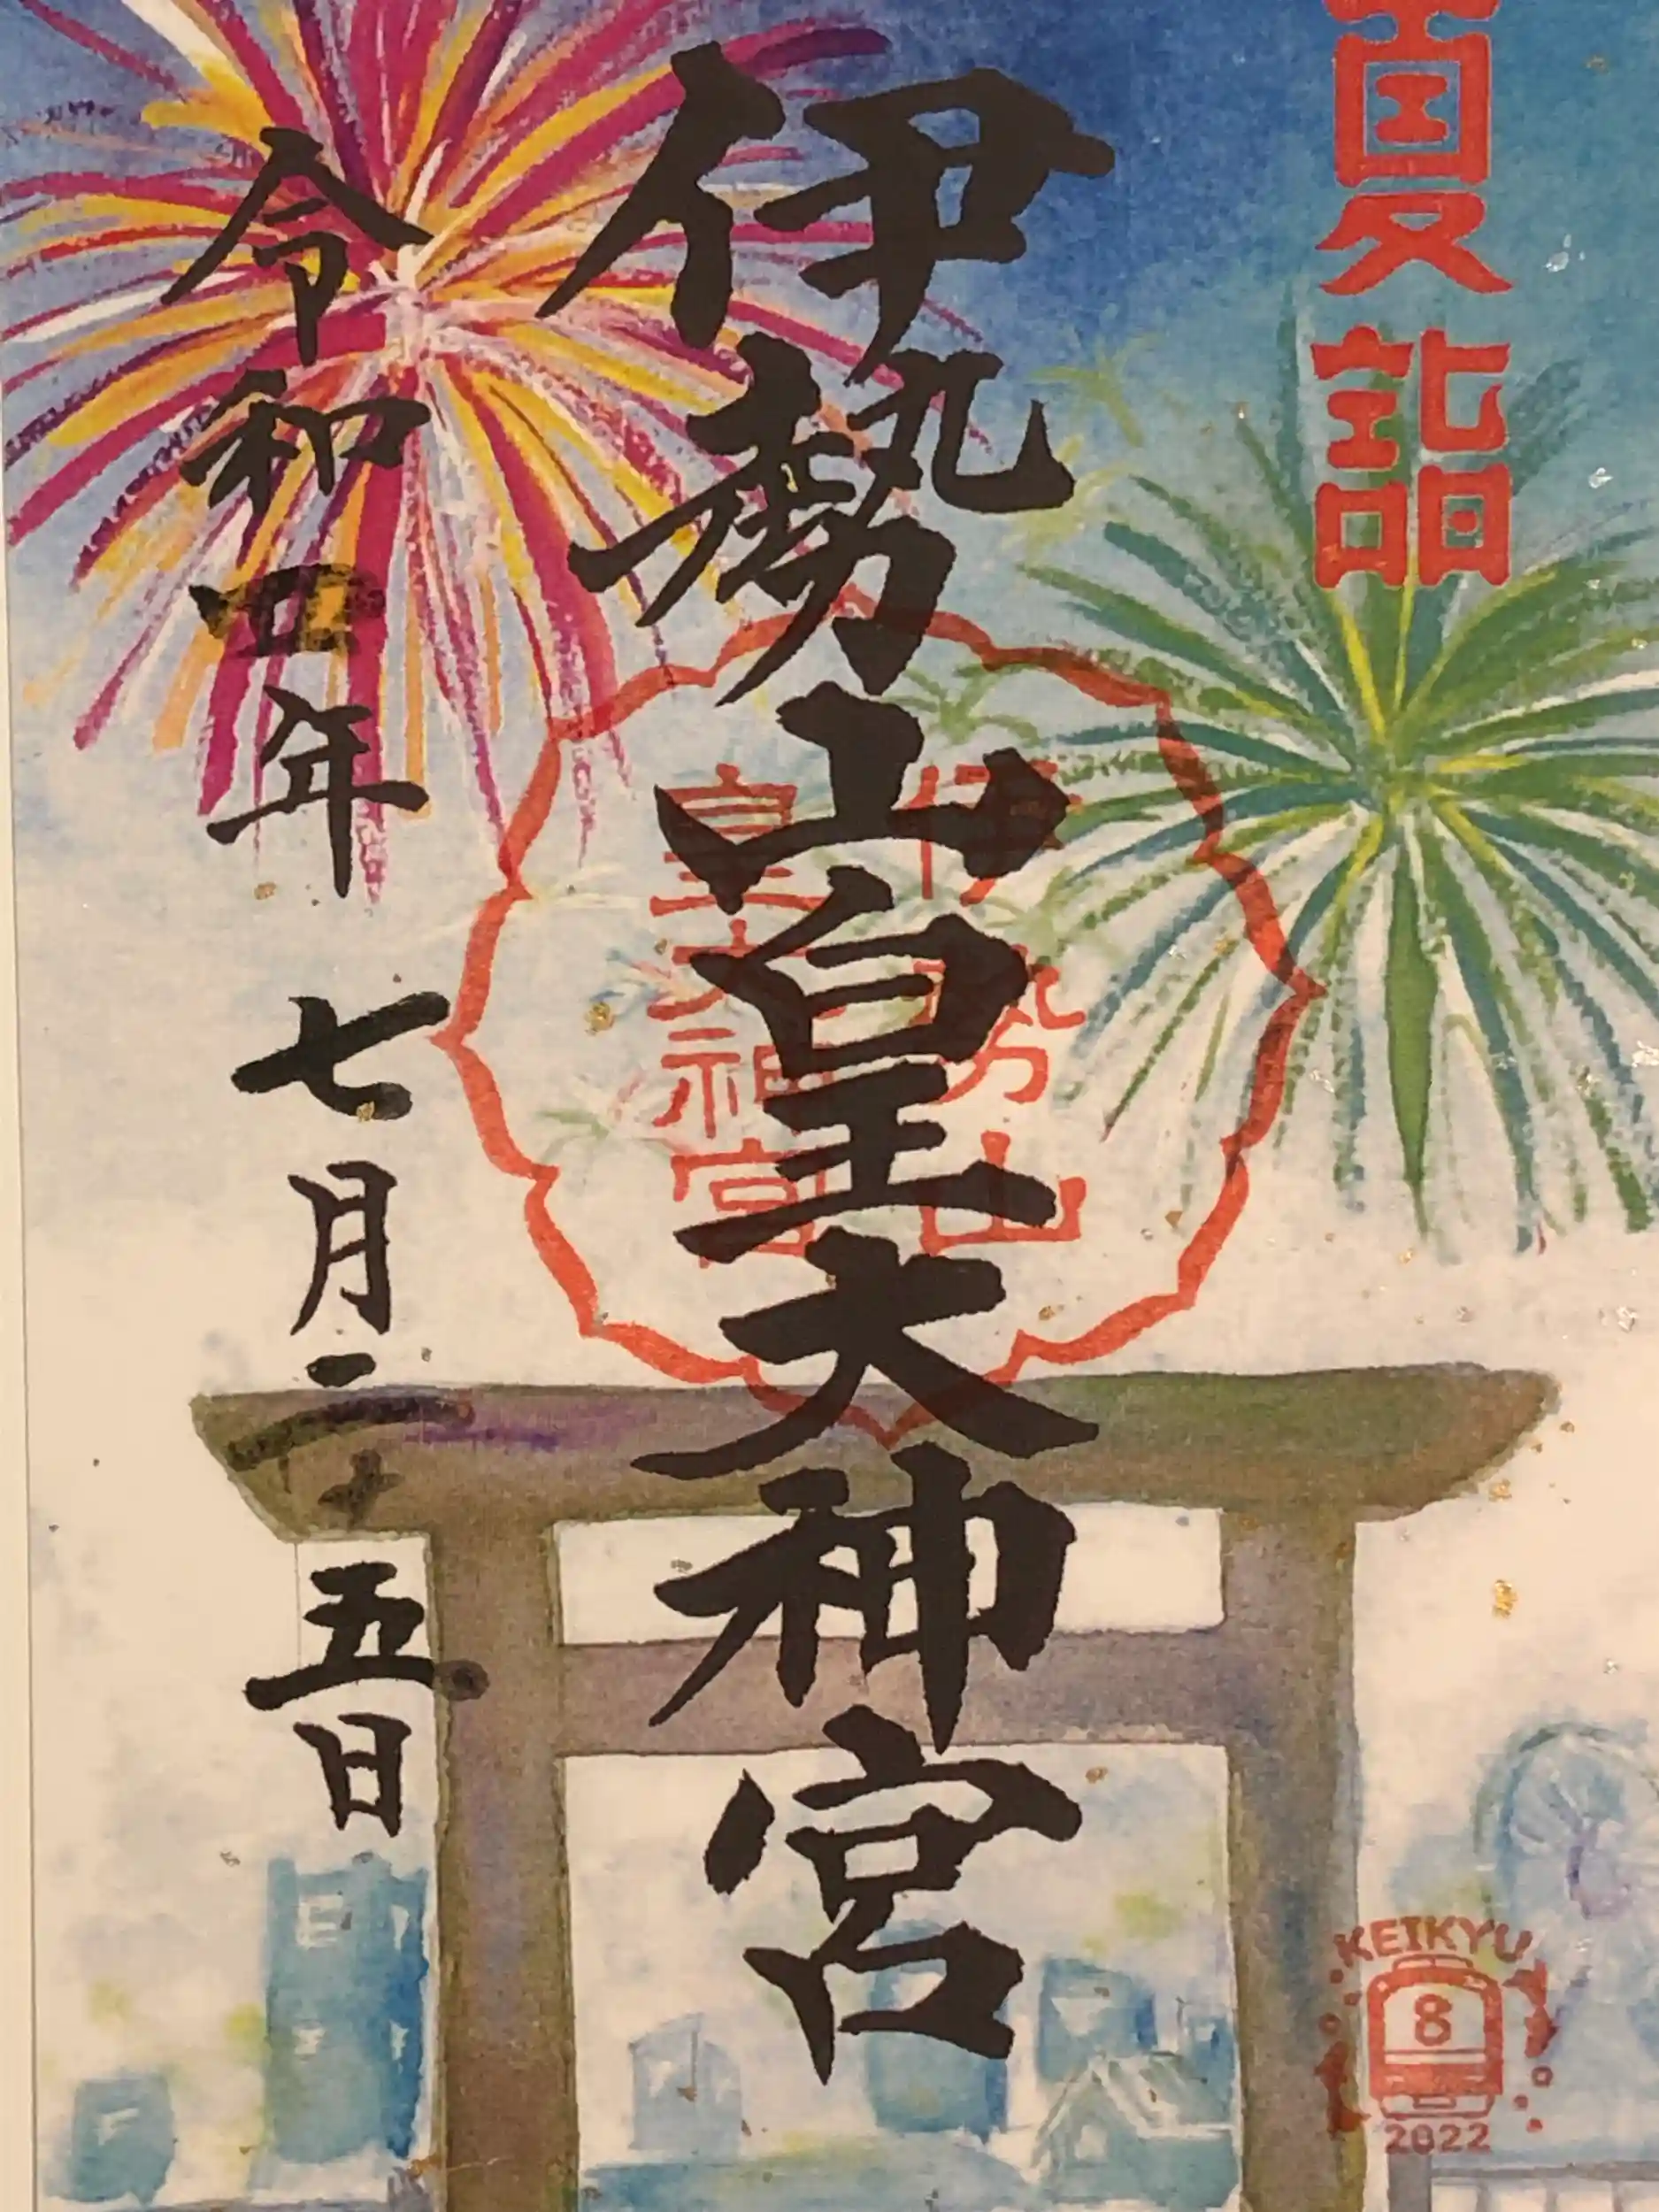 夏詣
伊勢山皇大神宮
伊勢山
皇大神宮
令和四年 七月二十五日
KEIKYU
8
2022